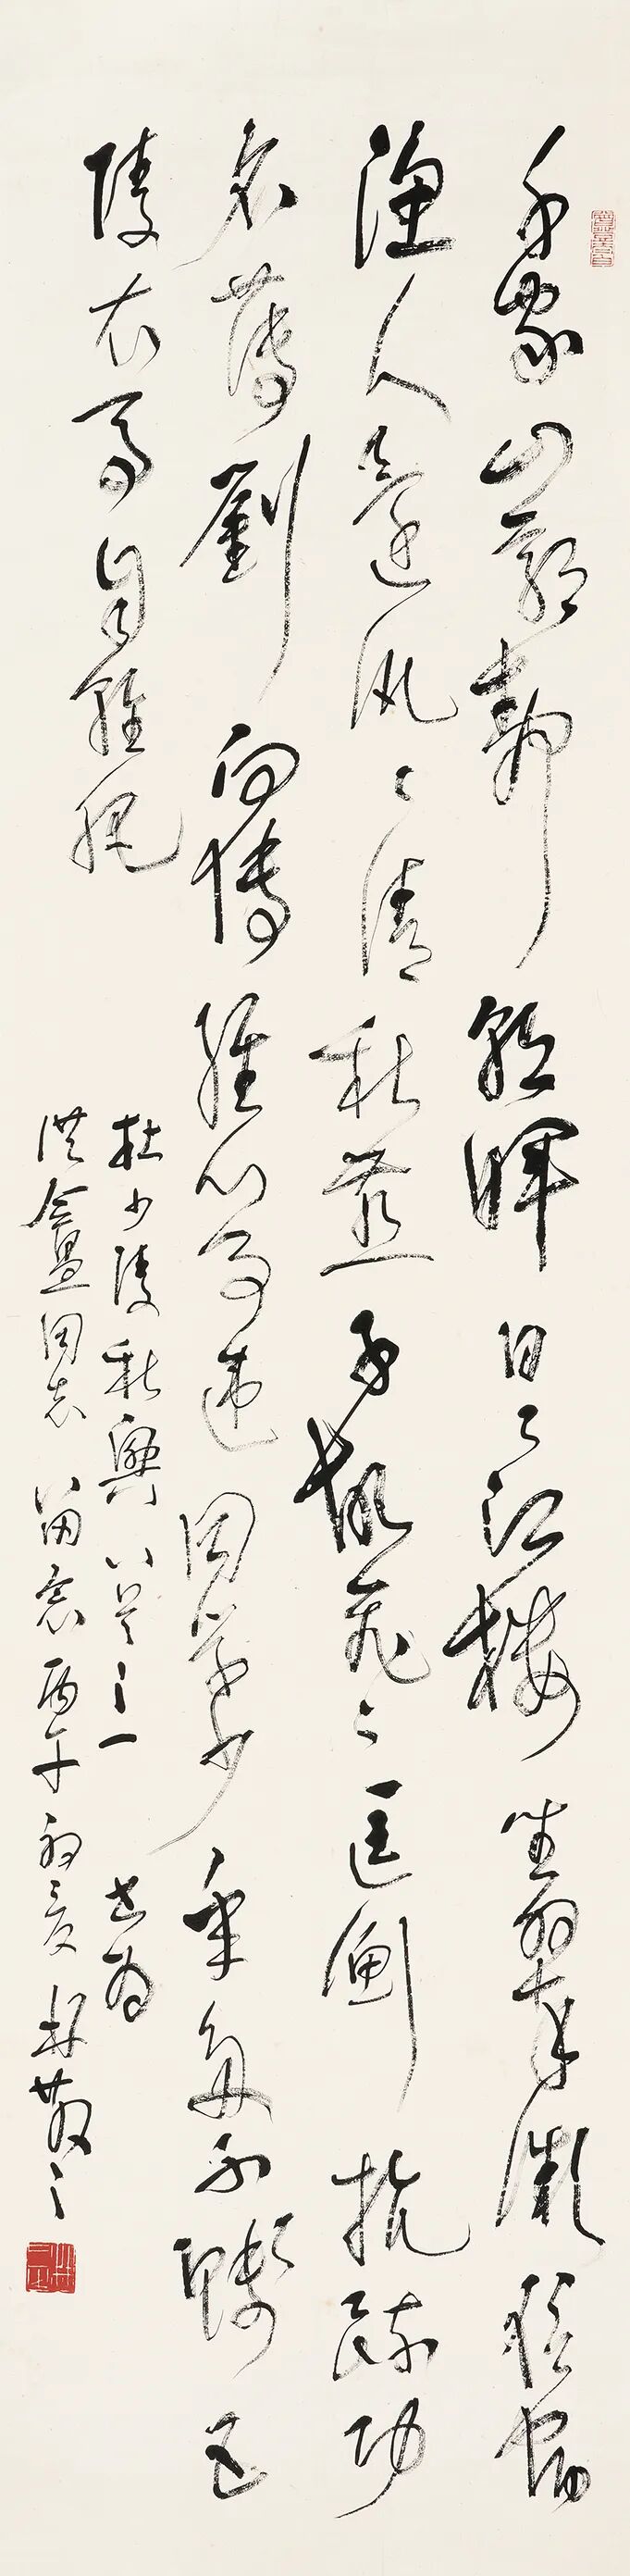 千家山郭静朝暉日〻江樓坐翠微信宿
漁人還汎〻清秋燕子故飛〻匡衡抗疏功
名薄劉向傳經心事違同學少年多不賤五
陵衣馬自輕肥
杜少陵秋興八首之一 書為
洪盦同志留念 丙午初夏 林散之